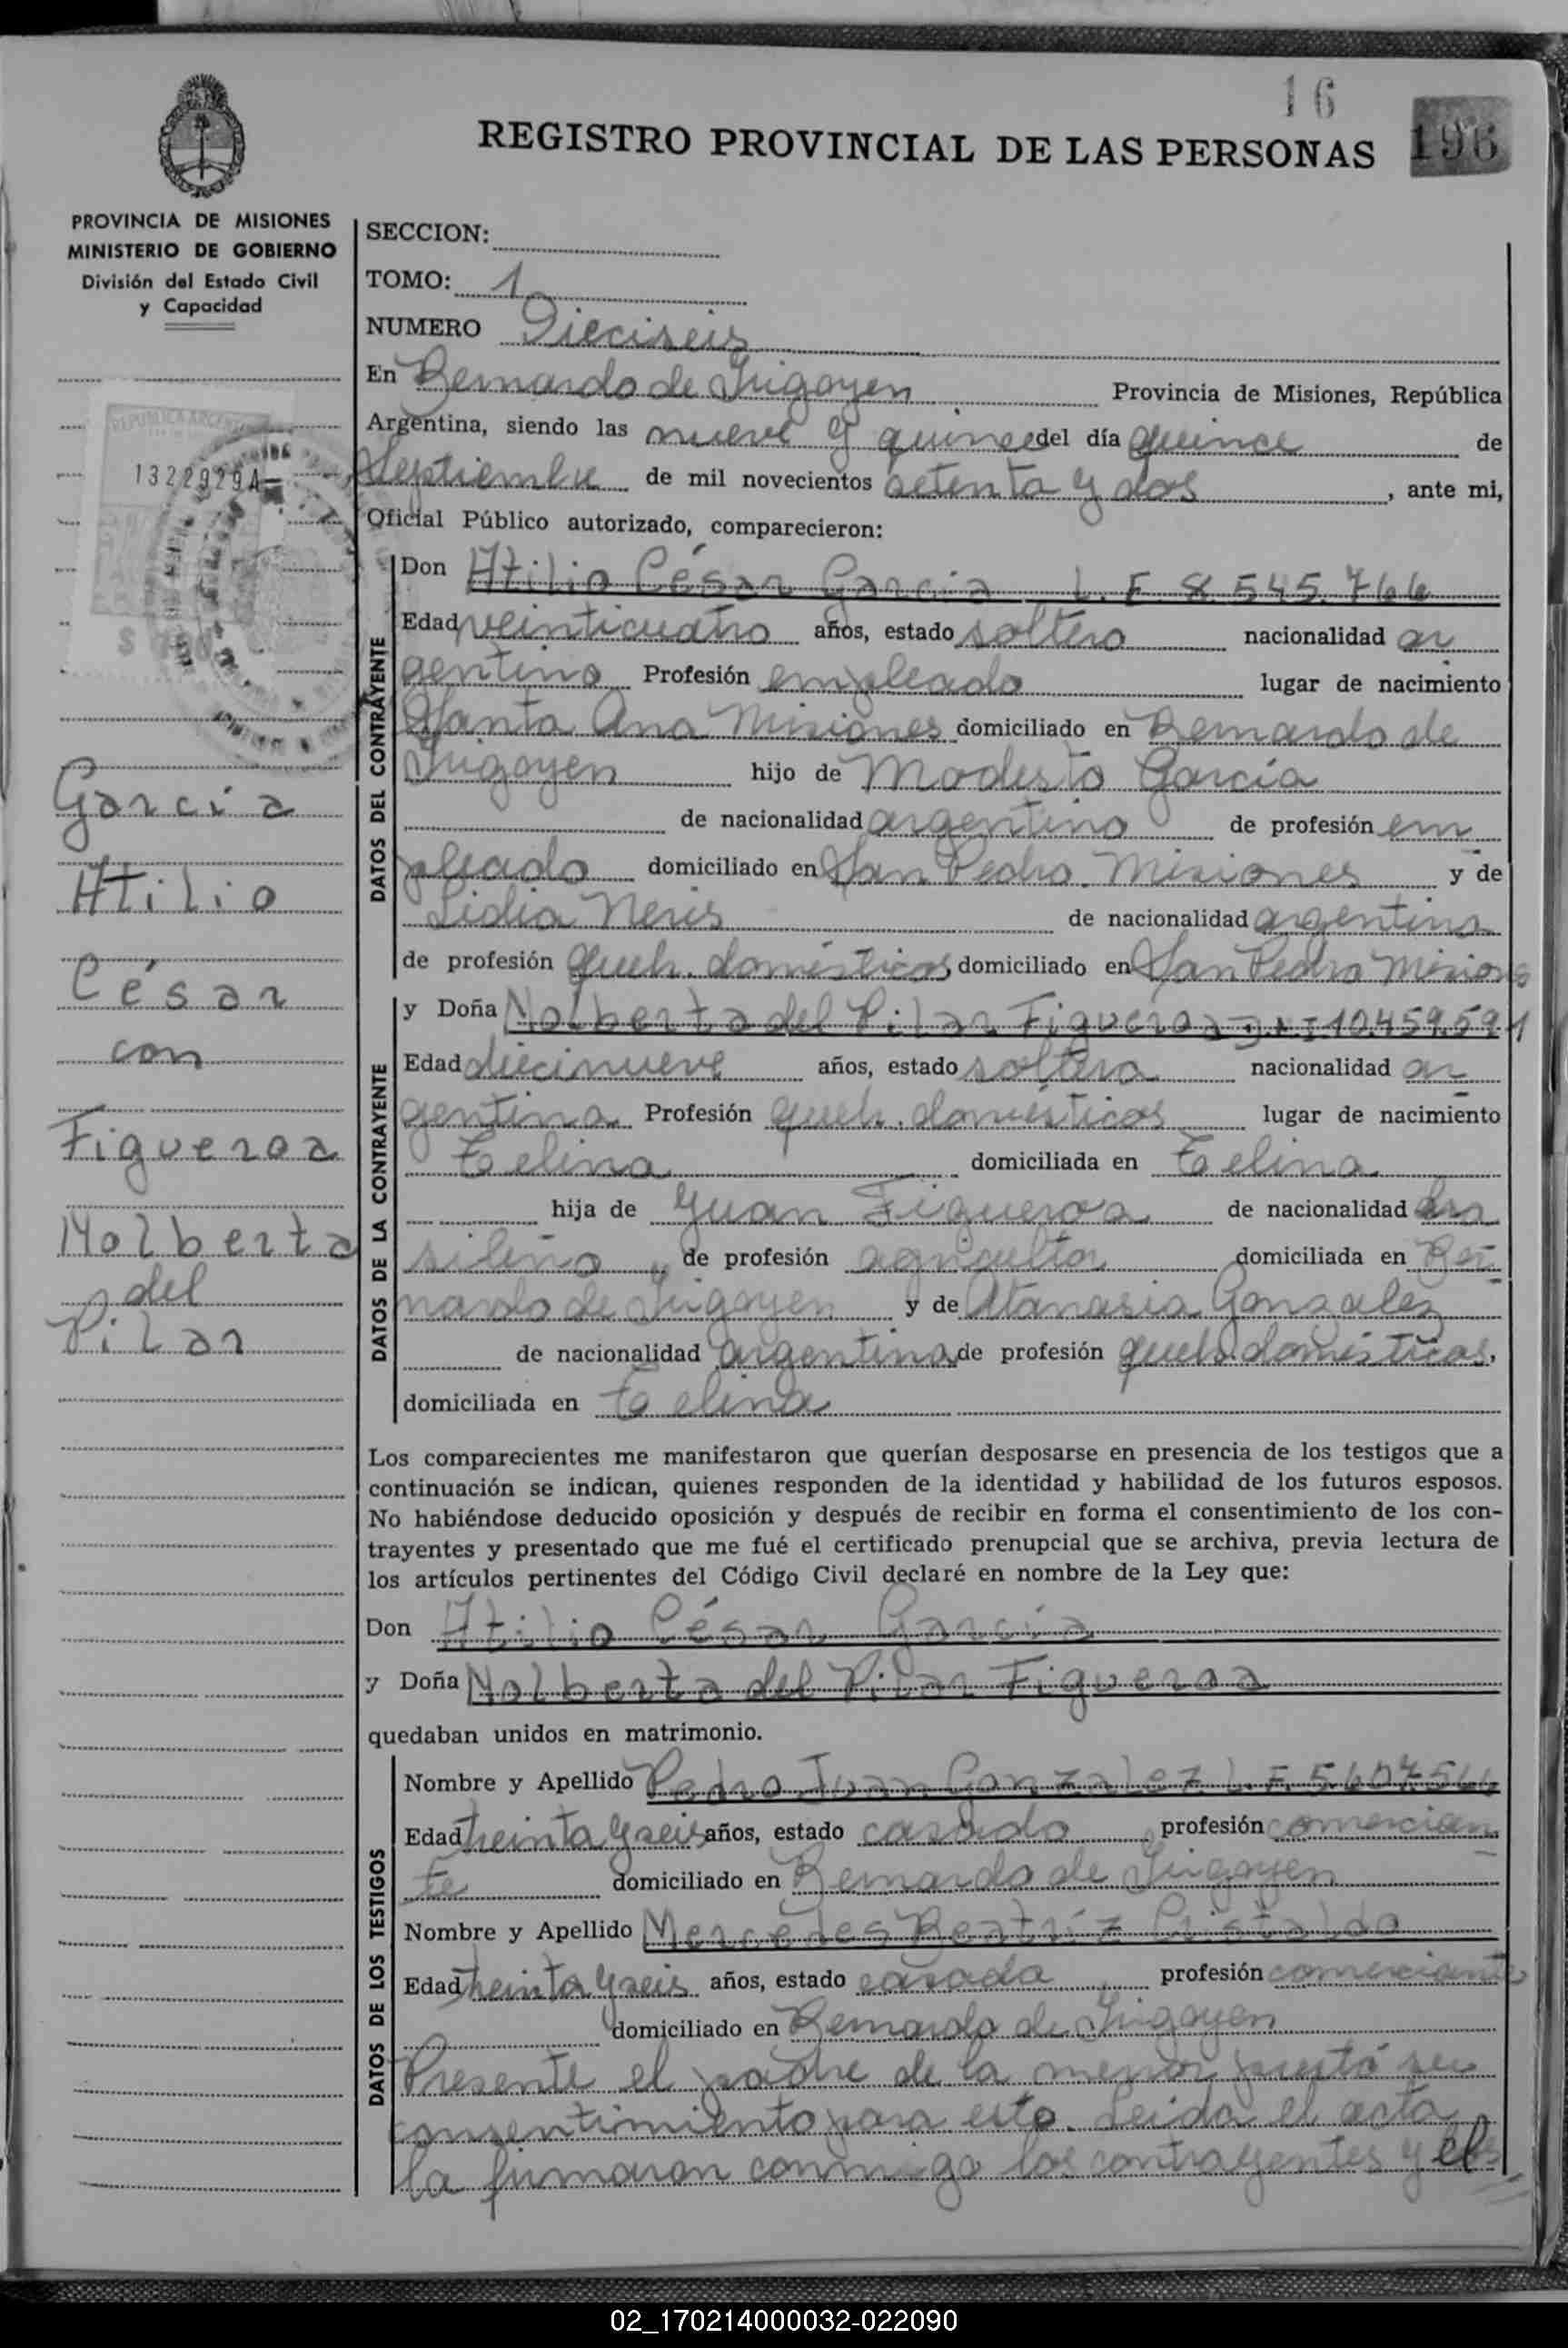 16
REGISTRO PROVINCIAL DE LAS PERSONAS 196
PROVINCIA DE MISIONES
MINISTERIO DE GOBIERNO
División del Estado Civil
y Capacidad
REPUBLICA ARGENTINA
1322929A
García
Atilio
César
con
Figueroa
Nolberta
del
Pilar
SECCION:
TOMO: 1
NUMERO Dieciseis
En Bernardo de Irigoyen Provincia de Misiones, República
Argentina, siendo las nueve y quince del día quince de
Septiembre de mil novecientos setenta y dos, ante mi,
Oficial Público autorizado, comparecieron:
DATOS DEL CONTRAYENTE
Don Atilio César García L. E 8.545.766
Edad veinticuatro años, estado soltero nacionalidad ar
gentino Profesión empleado lugar de nacimiento
Santa Ana Misiones domiciliado en Bernardo de
Irigoyen hijo de Modesto García
de nacionalidad argentino de profesión em
pleado domiciliado en San Pedro. Misiones y de
Lidia Neris de nacionalidad argentina
de profesión queh. domésticos domiciliado en San Pedro Misiones
DATOS DE LA CONTRAYENTE
y Doña Nolberta del Pilar Figueroa 10.459.591
Edad diecinueve años, estado soltera nacionalidad ar
gentina Profesión queh. domésticos lugar de nacimiento
Tobelina domiciliada en Tobelina
hija de Juan Figueroa de nacionalidad bra
sileño de profesión agricultor domiciliada en Ber
nardo de Irigoyen y de Atanasia Gonzalez
de nacionalidad argentina de profesión queh. domésticos,
domiciliada en Tobelina
Los comparecientes me manifestaron que querían desposarse en presencia de los testigos que a
continuación se indican, quienes responden de la identidad y habilidad de los futuros esposos.
No habiéndose deducido oposición y después de recibir en forma el consentimiento de los con-
trayentes y presentado que me fué el certificado prenupcial que se archiva, previa lectura de
los artículos pertinentes del Código Civil declaré en nombre de la Ley que:
Don Atilio César García
y Doña Nolberta del Pilar Figueroa
quedaban unidos en matrimonio.
DATOS DE LOS TESTIGOS
Nombre y Apellido Pedro Juan Gonzalez L. E.
Edad treinta y seis años, estado casado profesión comercian
te domiciliado en Bernardo de Irigoyen
Nombre y Apellido Mercedes Beatríz Cristaldo
Edad treinta y seis años, estado casada profesión comerciante
domiciliado en Bernardo de Irigoyen
Presente el padre de la menor prestó su
consentimiento para esto. Leída el acta
la firmaron conmigo los contrayentes y el
02_170214000032-022090